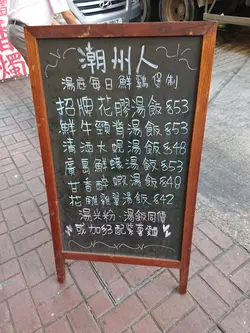 潮州人
湯底每日鮮鷄煲制
招牌花膠湯飯 $53
鮮牛頸脊湯飯 $53
清酒大蜆湯飯 $48
廣島鮮蠔湯飯 $53
甘香醉蝦湯飯 $48
花雕雞翼湯飯 $42
湯米粉、湯飯同價
或加 $3 配紫菜麵
燭